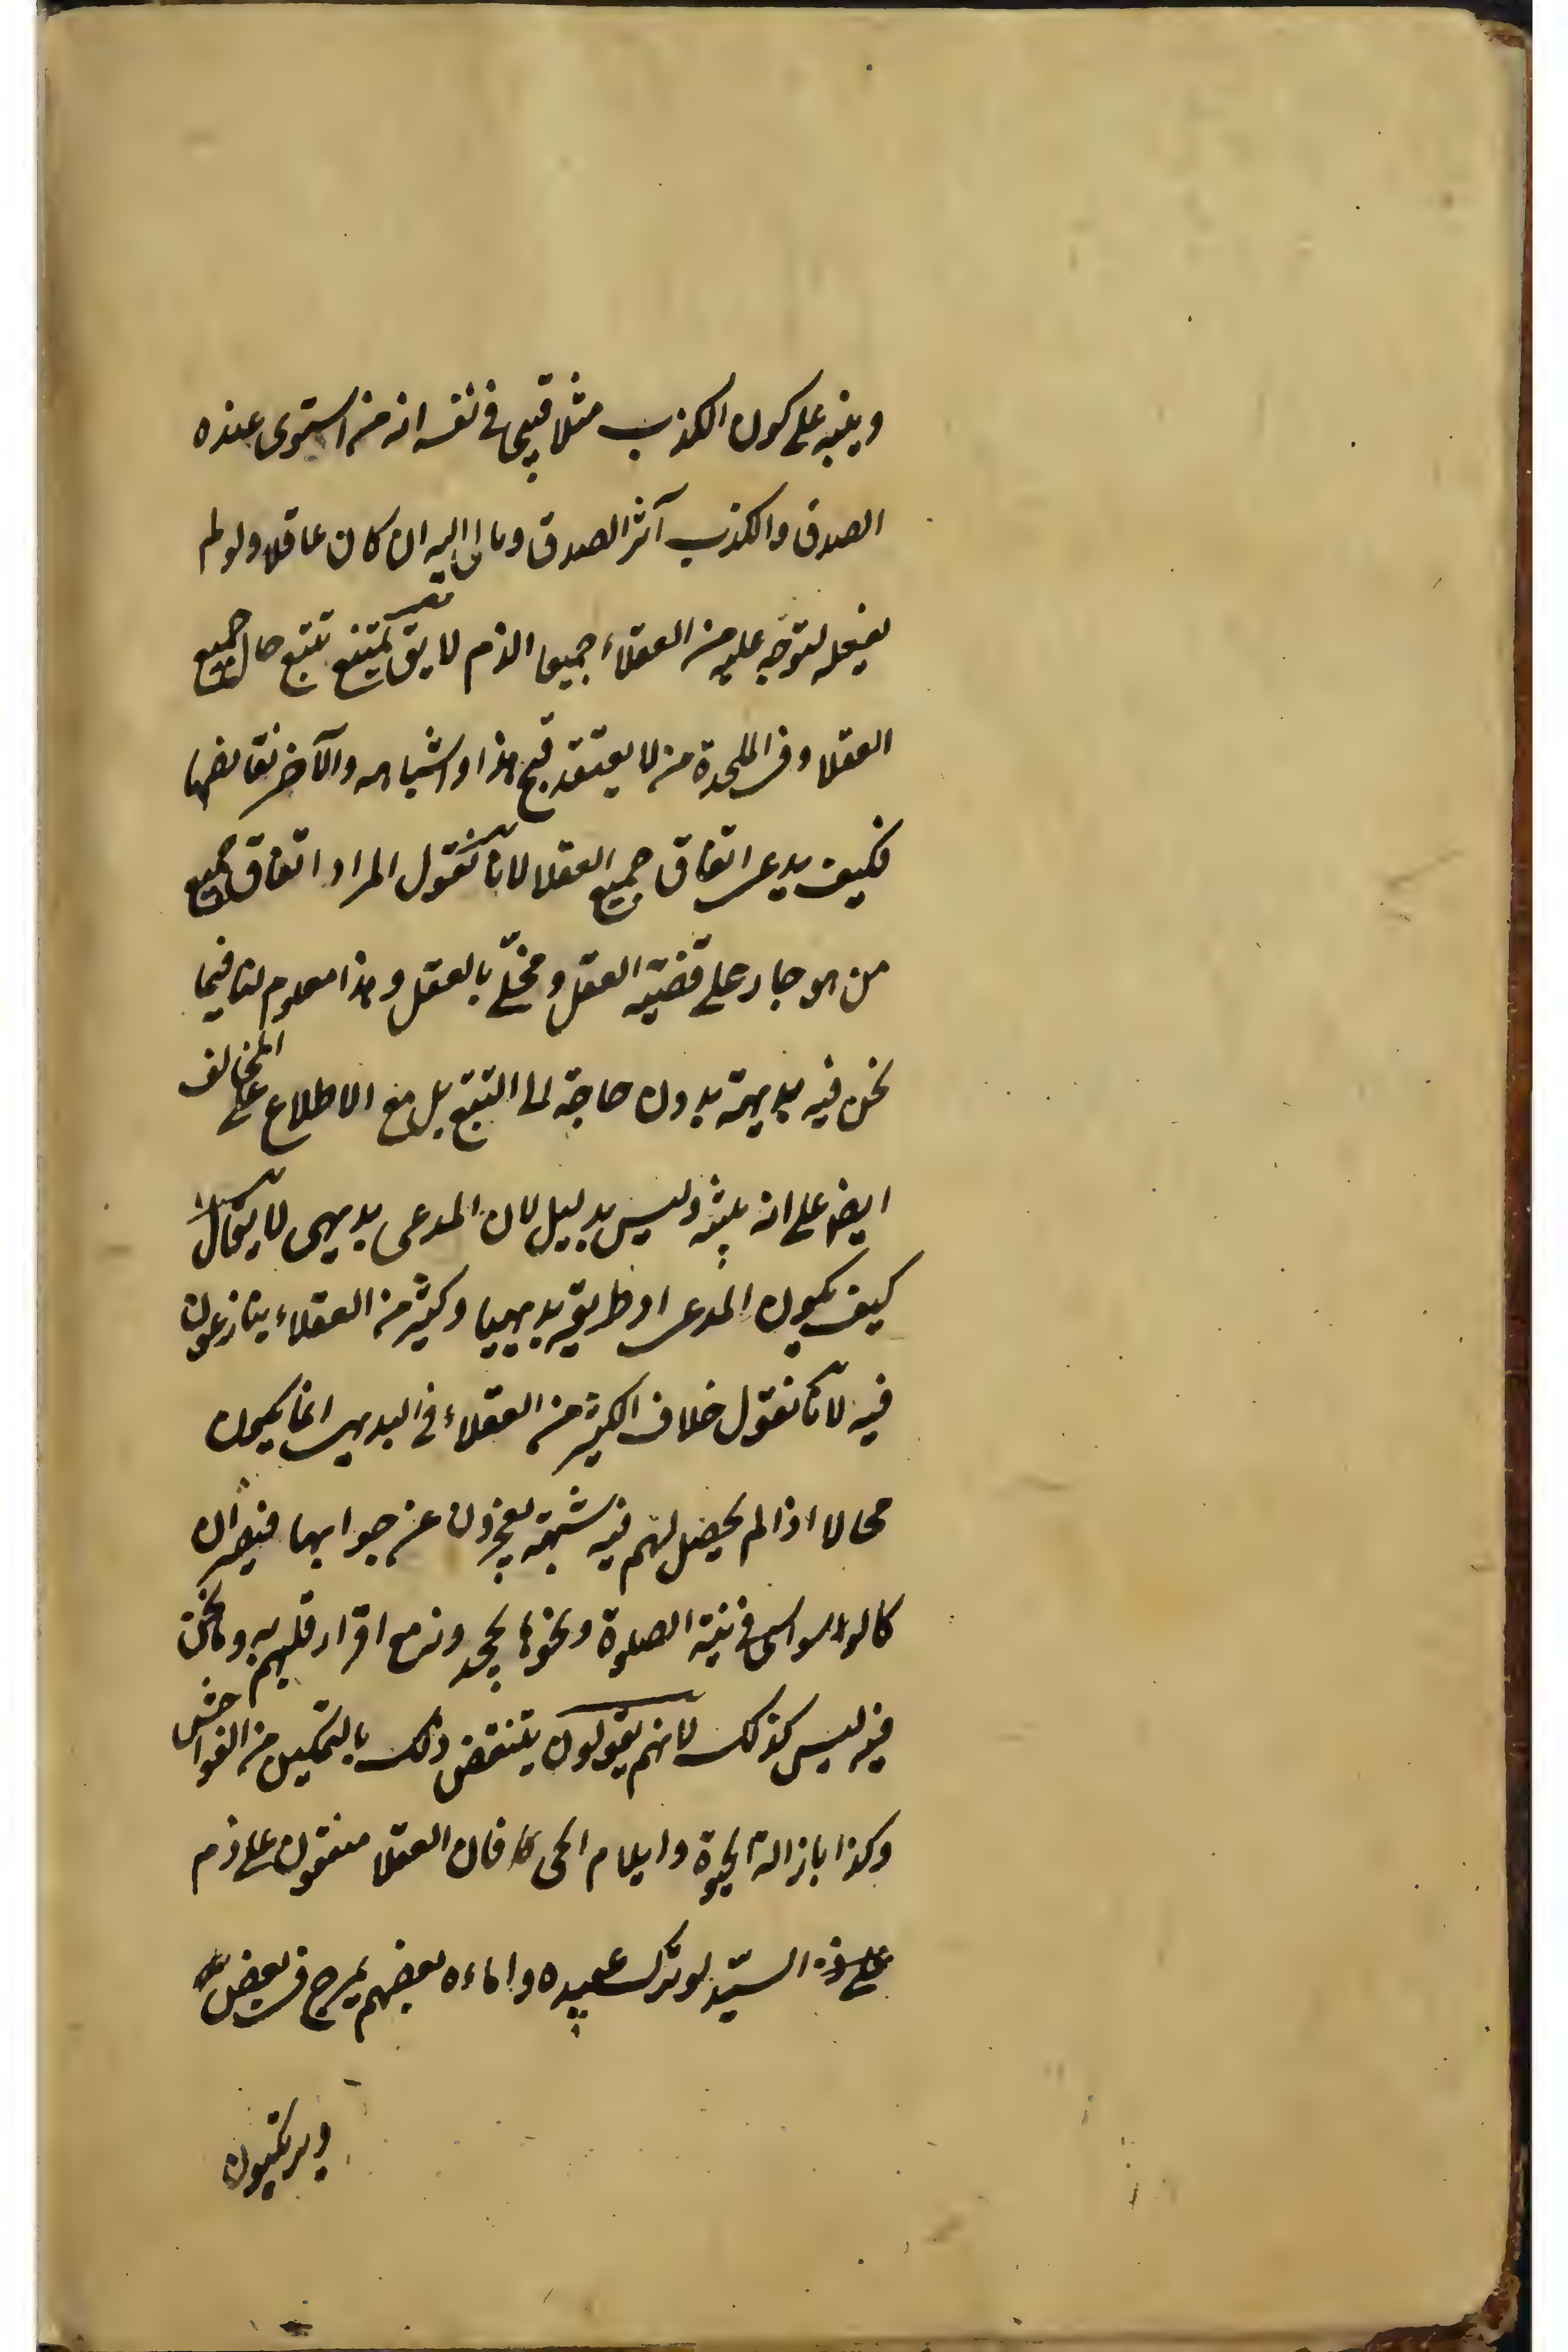 وينبه على كون الكذب مثلا قبيحا في نفسه انه من استوى عنده
الصدق والكذب آثر الصدق ومال اليه ان كان عاقلا ولو لم
يفعله لتوجه عليه من العقلاء جميعا الذم لا يق يمتنع تتبع حال جميع
العقلا وفي الملحدة من لا يعتقد قبح هذا واشباهه والآخر نقائضها
فكيف يدعى اتفاق جميع العقلا لانا نقول المراد اتفاق جميع
من هو جار على قضية العقل ومخلّى بالعقل وهذا معلوم لنا فيما
نحن فيه بديهة بدون حاجة الى التتبع بل مع الاطلاع على المخالف
ايضا على انه تنبيه وليس بدليل لان المدعى بديهي لا يقال
كيف يكون المدعى او طريقه بديهيا وكثير من العقلاء ينازعون
فيه لانا نقول خلاف الكثير من العقلاء في البديهي انما يكون
محالا اذا لم يحصل لهم فيه شبهة يعجزون عن جوابها فيصيرون
كالوسواسي في نية الصلوة ونحوها يجحدونه مع اقرار قلبهم به وما نحن
فيه ليس كذلك لانهم يقولون ينتقض ذلك بالتمكين من الفواحش
وكذا بازالة الحيوة وايلام الحى فان العقلا متفقون على ذم
السيد لو ترك عبيده واماءه بعضهم يمرج في بعض
ويرتكبون